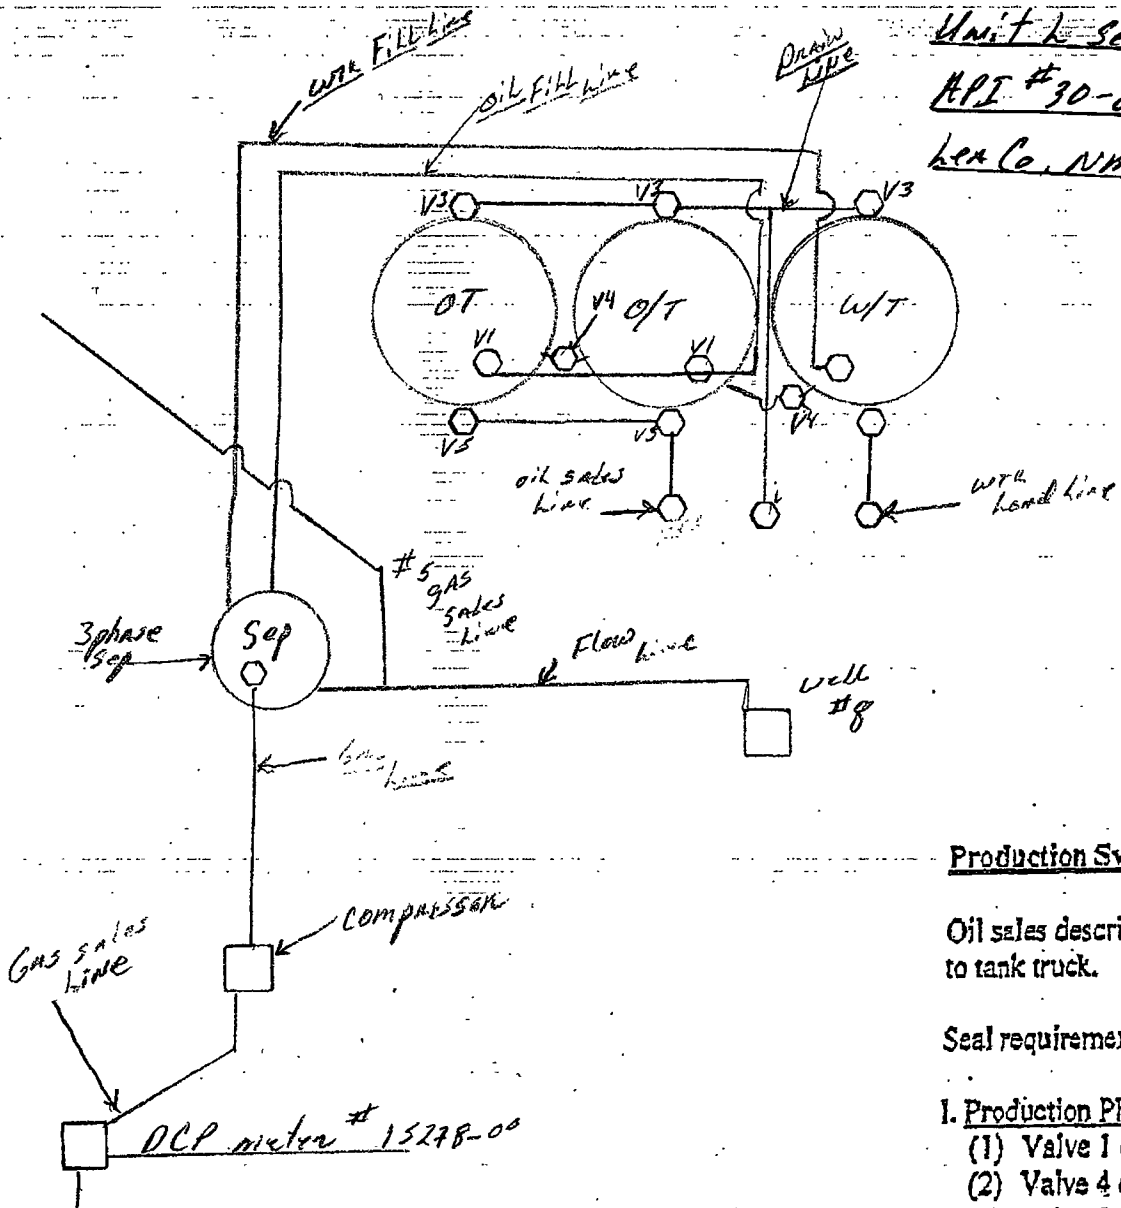 Unit L Se
API #30-0
Lea Co, NM
WTR Fill Line
Oil Fill Line
Drain Line
V3
V3
V3
OT
O/T
W/T
V4
V1
V1
V4
V5
V5
oil sales
Line
WTR
Load Line
#5
gas
sales
Line
3phase
Sep
Sep
Flow Line
well
#8
Gas
Line
Compressor
Gas sales
Line
DCP meter # 15278-00
Production Sy
Oil sales descri
to tank truck.
Seal requiremen
I. Production Ph
(1) Valve 1
(2) Valve 4